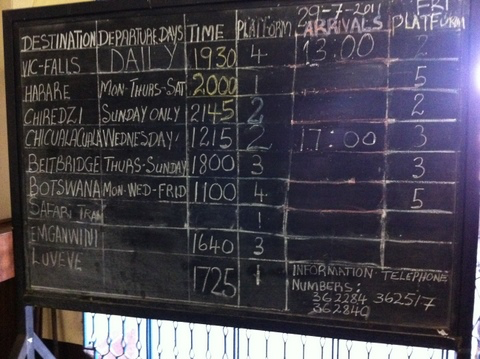 29-7-2011 FRI
DESTINATION DEPARTURE DAYS TIME PLATFORM ARRIVALS PLATFORM
VIC-FALLS DAILY 1930 4 13:00 2
HARARE MON-THURS-SAT 2000 1 5
CHIREDZI SUNDAY ONLY 2145 2 2
CHICUALACUALA WEDNESDAY 1215 2 17:00 3
BEITBRIDGE THURS-SUNDAY 1800 3 3
BOTSWANA MON-WED-FRID 1100 4 5
SAFARI TRAI 1
EMGANWINI 1640 3
LUVEVE 1725 1
INFORMATION TELEPHONE
NUMBERS:
362284 362517
362840